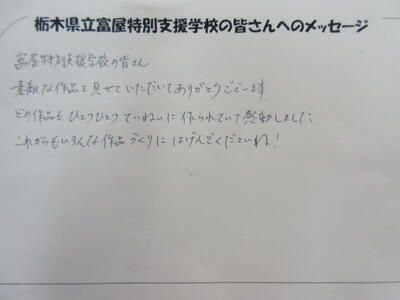 栃木県立富屋特別支援学校の皆さんへのメッセージ
富屋特別支援学校の皆さん
素敵な作品を見せていただいてありがとうございます。
どの作品もひとつひとつていねいに作られていて感動しました。
これからもいろんな作品づくりにはげんでくださいね!